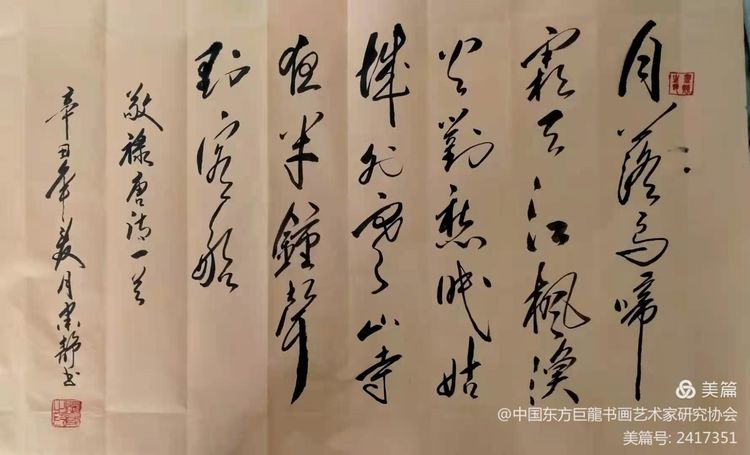 月落烏啼
霜天江楓漁
火對愁眠姑
城外寒山寺
夜半鐘聲
到客船
敬禄唐诗一首
辛丑年夏月静书
美篇
@中国东方巨龍书画艺术家研究协会
美篇号: 2417351